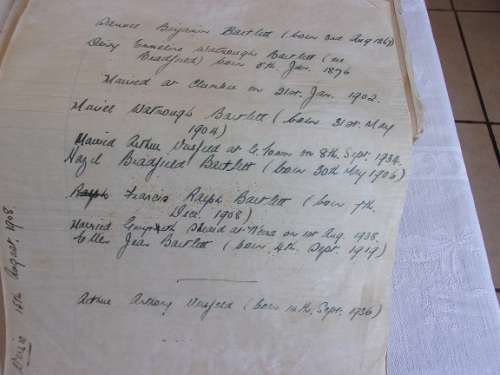 Benjamin Bartlett (born 2nd Aug 1867)
Daisy Emmeline Watnough Bartlett (née
Bradfield) born 8th Jan. 1876
Married at on 21st. Jan. 1902.
Muriel Watnough Bartlett (born 31st. May
1904)
Married Arthur at G. Town on 8th. Sept. 1934.
Hazel Bradfield Bartlett (born 30th May 1906)
Francis Ralph Bartlett (born 7th.
Dec. 1908)
Married at on 1st Aug. 1938.
Ellen Jean Bartlett (born 4th. Sept. 1917)
Arthur Antony (born 14th. Sept. 1936)
15th August. 1908.